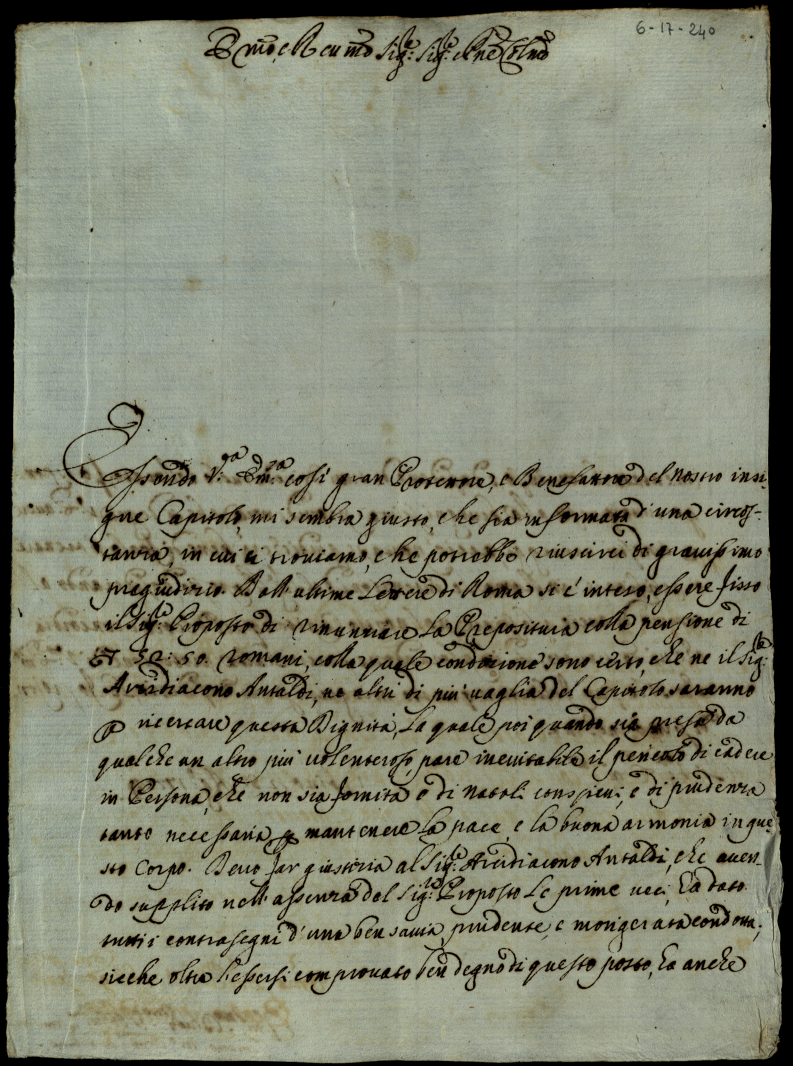 6-17-240
Em̃o, e R eu m̃o Sig.r Sig.r e P̃ne Col.mo
Essendo V.ra Em.za così gran Protettore, e Benefattore del nostro insi-
gne Capitolo, mi sembra giusto, che sia informata d'una circos-
tanza, in cui ci troviamo, che potrebbe riuscirci di gravissimo
pregiudizio. Dall'ultime Lettere di Roma si è inteso, essere fisso
il Sig.r Proposto di rinunciare la Prepositura colla pensione di
52:50 romani, colla quale condizione sono certo, che ne il Sig.r
Arcidiacono Antaldi, ne altri di più vaglia del Capitolo saranno
p ricercare questa Dignità, la quale poi quando sia presa da
qualche un altro più volenteroso pare inevitabile il pericolo di cadere
in Persona, che non sia fornita e di natali conspicui, e di prudenza
tanto necessaria p mantenere la pace, e la buona armonia in que-
sto Corpo. Devo far giustizia al Sig.r Arcidiacono Antaldi, che aven-
do supplito nell'assenza del Sig.r Proposto le prime veci, hà dato
tutti i contrasegni d'una ben savia, prudente, e morigerata condotta;
sicche oltre l'essersi comprovato ben degno di questo posto, hà anche